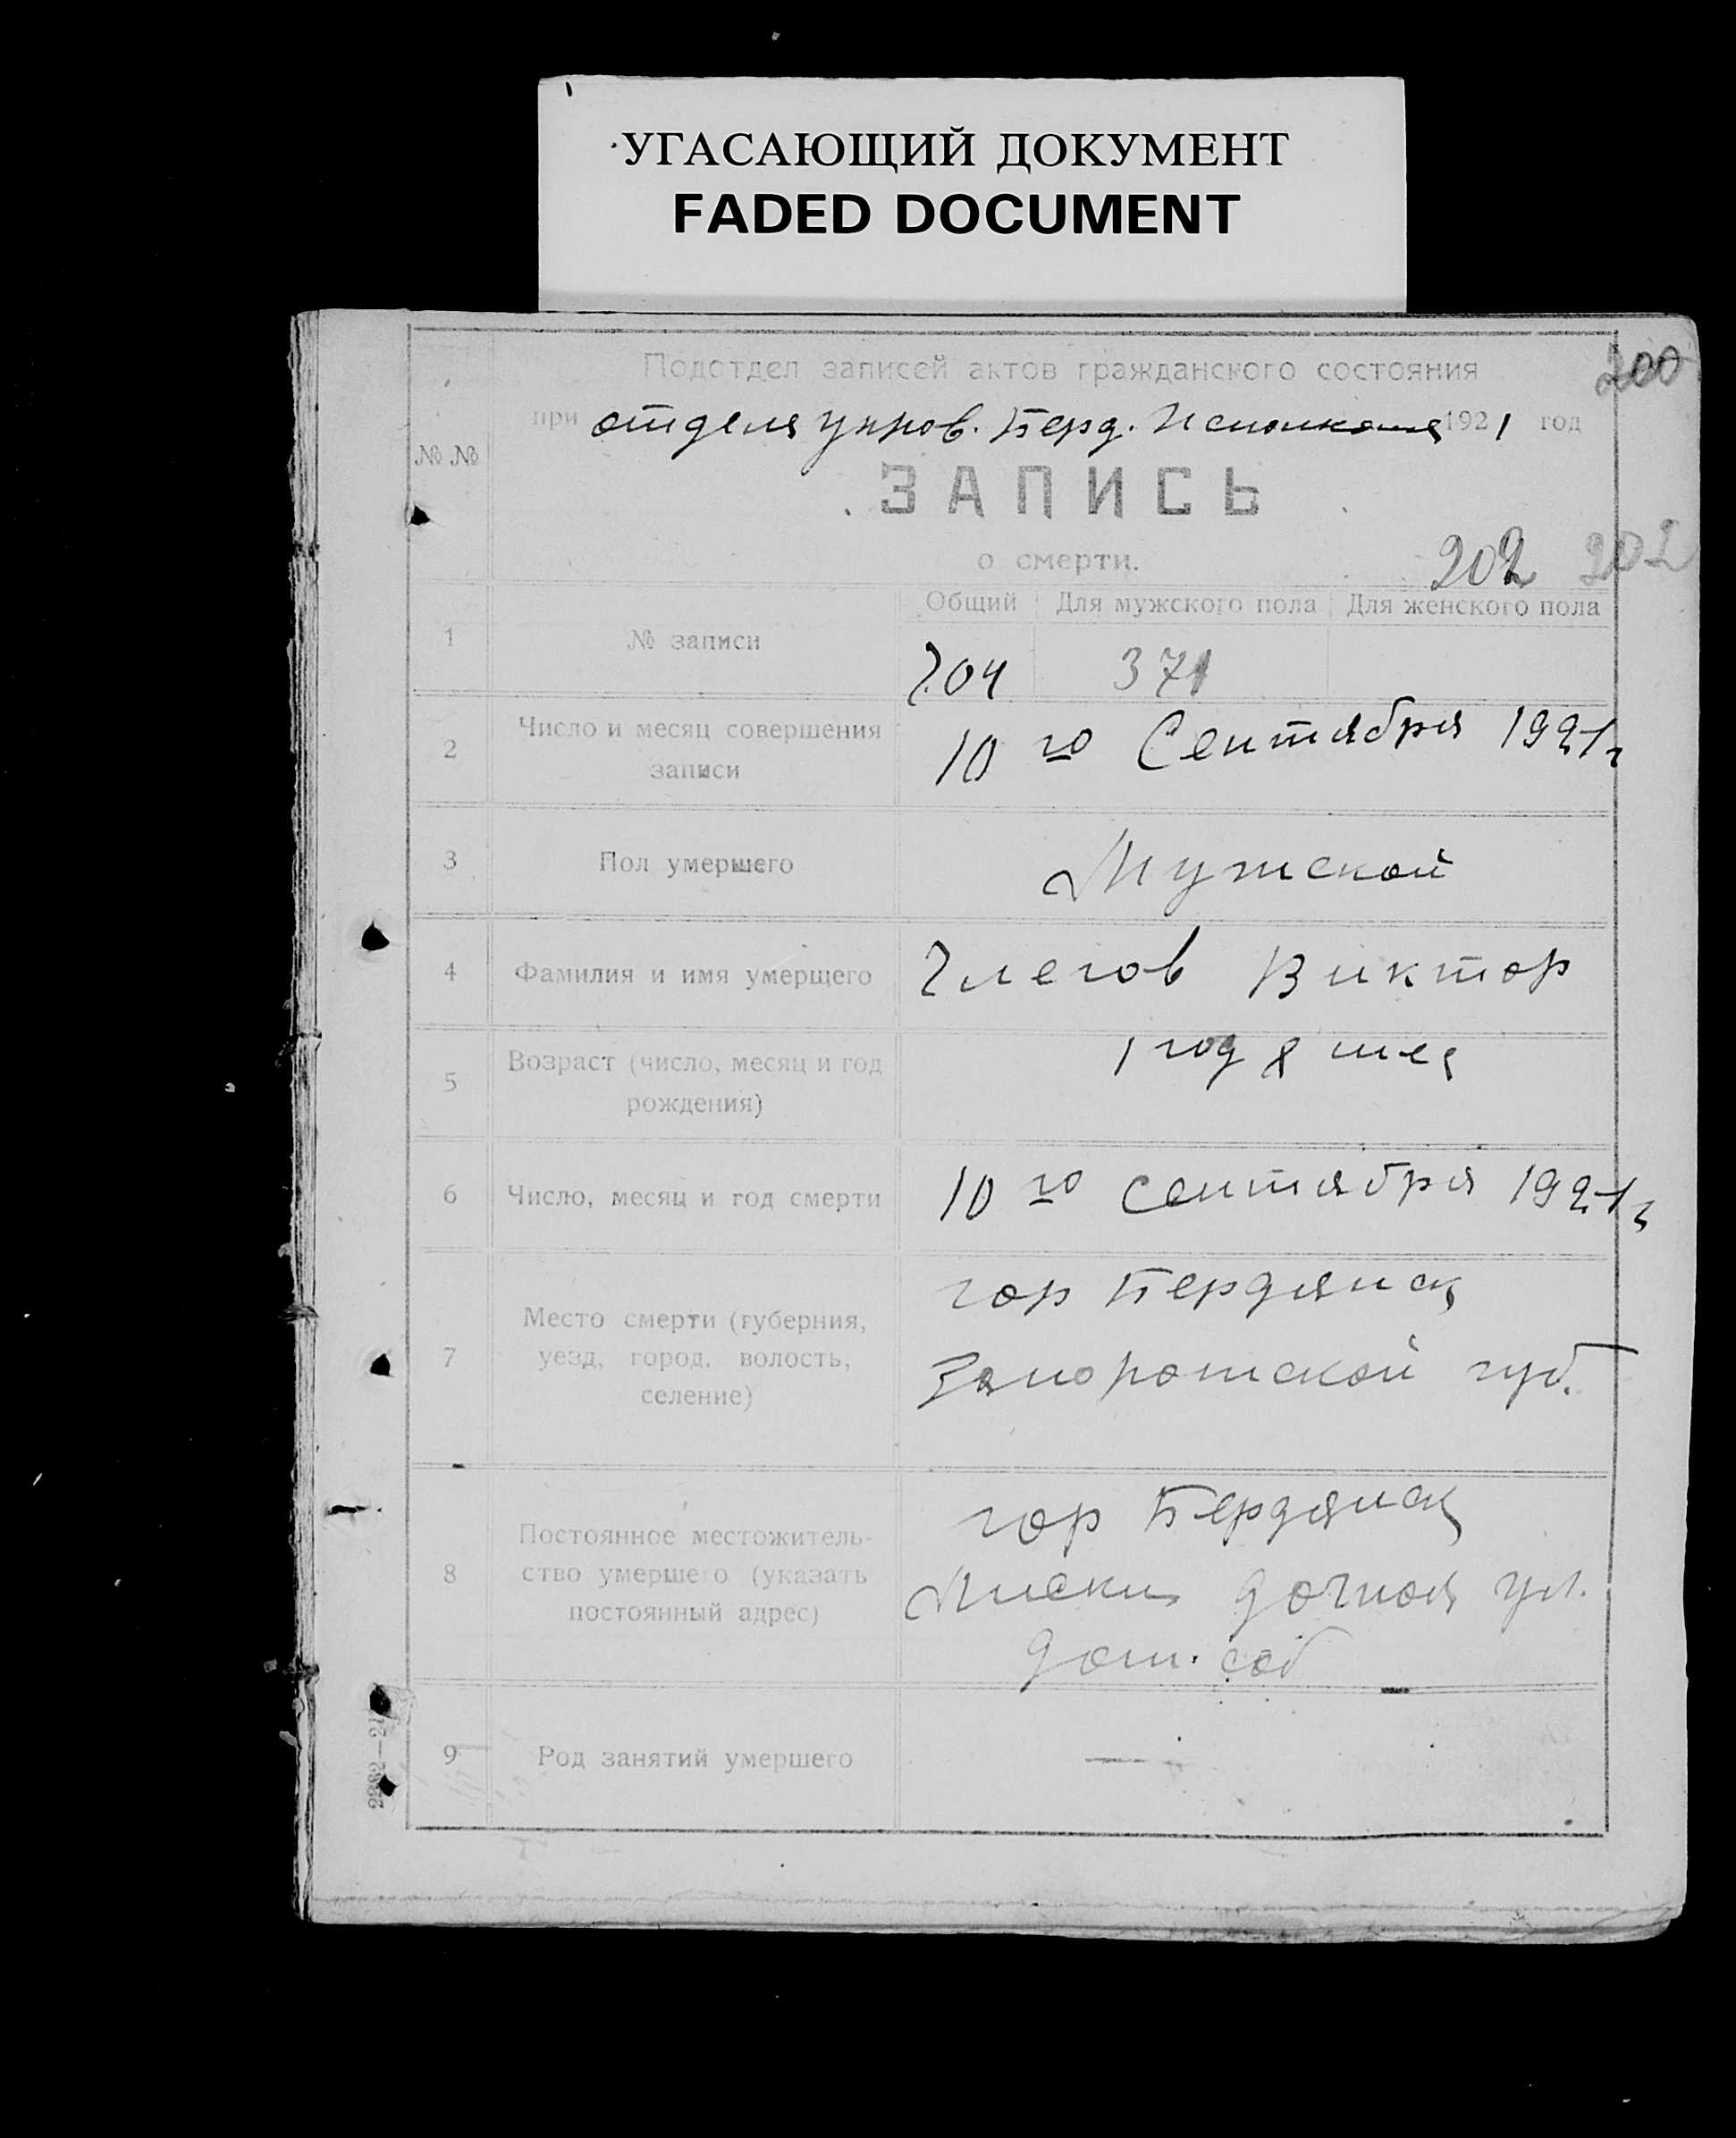 УГАСАЮЩИЙ ДОКУМЕНТ
FADED DOCUMENT
200
Подотдел записей актов гражданского состояния
при отдела управ. Берд. Исполкома 1921 год
№ №
ЗАПИСЬ
о смерти.
202 202
Общий Для мужского пола Для женского пола
1 № записи 704 371
2 Число и месяц совершения
записи
10 го Сентября 1921 г
3 Пол умершего Мужской
4 Фамилия и имя умершего Глегов Виктор
5 Возраст (число, месяц и год
рождения)
1 год 8 мес
6 Число, месяц и год смерти 10 го Сентября 1921 г
7 Место смерти (губерния,
уезд, город, волость,
селение)
гор Бердянск
Запорожской губ.
8 Постоянное местожитель-
ство умершего (указать
постоянный адрес)
гор Бердянск
ул.
дом. соб
9 Род занятий умершего —